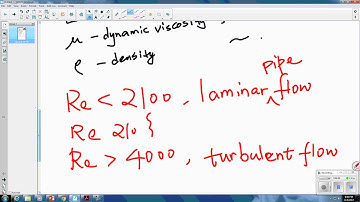 μ - dynamic viscosity
ρ - density
pipe
Re < 2100, laminar flow
Re 210
Re > 4000, turbulent flow